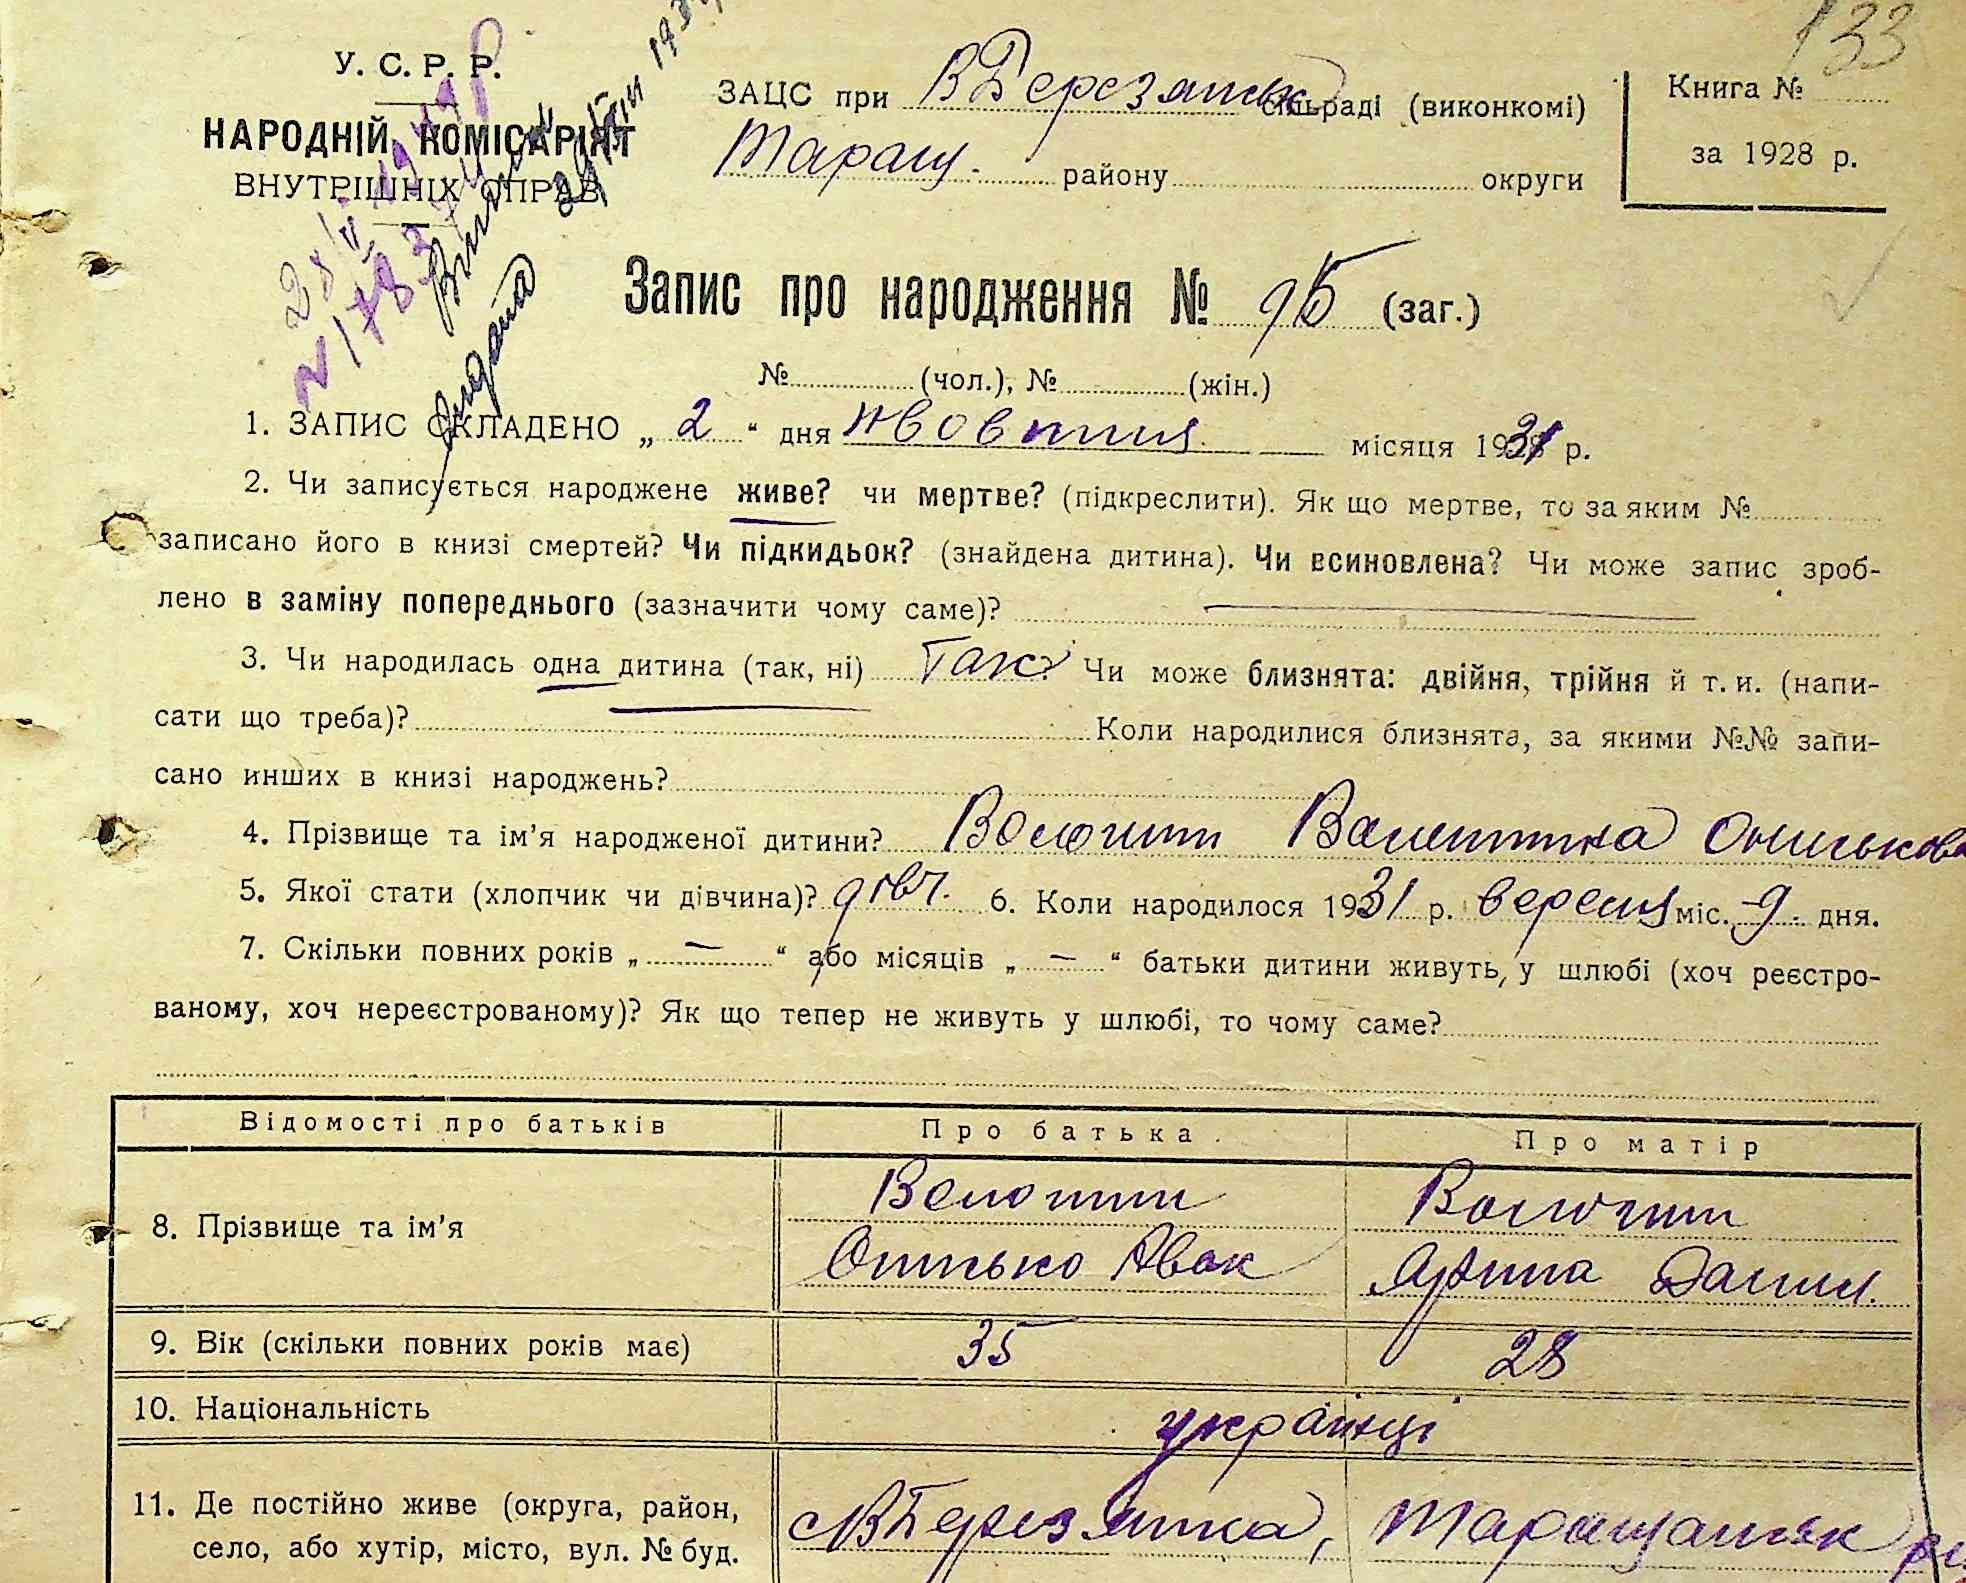 133
У. С. Р. Р.
НАРОДНІЙ КОМІСАРІЯТ
ВНУТРІШНІХ СПРАВ
ЗАЦС при В Березянськ сільраді (виконкомі)
Таращ. району округи
Книга №
за 1928 р.
Запис про народження № 95 (заг.)
№ (чол.), № (жін.)
1. ЗАПИС СКЛАДЕНО „ 2 “ дня жовтня місяця 1931 р.
2. Чи записується народжене живе? чи мертве? (підкреслити). Як що мертве, то за яким №
записано його в книзі смертей? Чи підкидьок? (знайдена дитина). Чи всиновлена? Чи може запис зроб-
лено в заміну попереднього (зазначити чому саме)?
3. Чи народилась одна дитина (так, ні) Так Чи може близнята: двійня, трійня й т. и. (напи-
сати що треба)? Коли народилися близнята, за якими №№ запи-
сано инших в книзі народжень?
4. Прізвище та ім’я народженої дитини? Волошин Валентина Ониськова
5. Якої стати (хлопчик чи дівчина)? дівч. 6. Коли народилось 1931 р. вересня міс. 9. дня.
7. Скільки повних років „ — “ або місяців „ — “ батьки дитини живуть у шлюбі (хоч реєстро-
ваному, хоч нереєстрованому)? Як що тепер не живуть у шлюбі, то чому саме?
Відомості про батьків Про батька. Про матір
8. Прізвище та ім’я
Волошин Волошин
Онисько Авак Ярина Данил.
9. Вік (скільки повних років має) 35 28
10. Національність українці
11. Де постійно живе (округа, район,
село, або хутір, місто, вул. № буд.
с В Березянка, Таращанськ